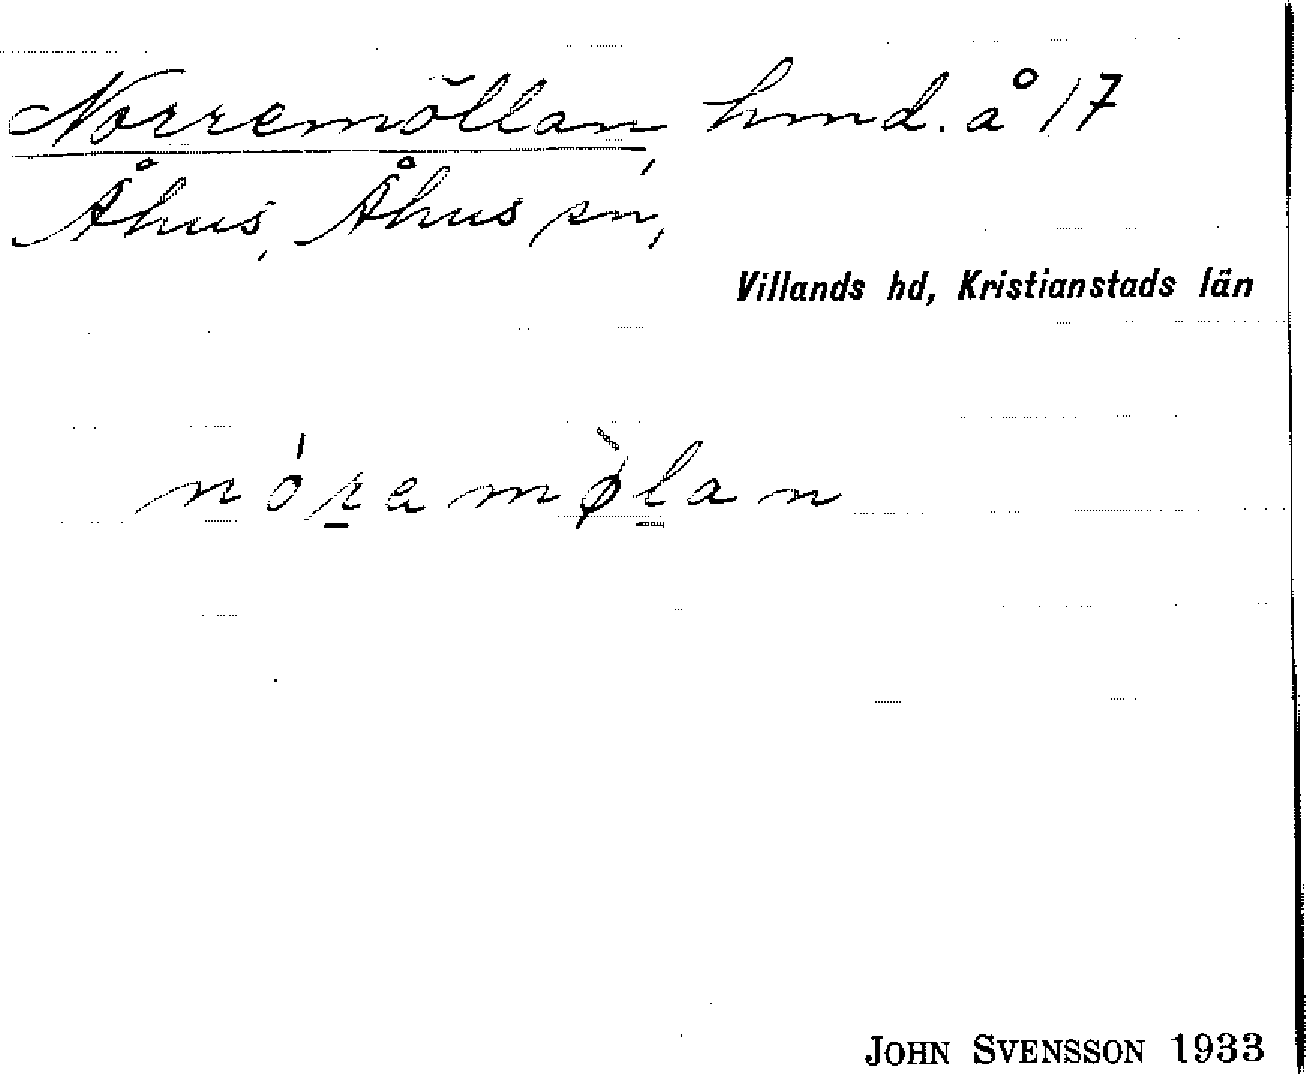 Norremöllan, hmd. å 17
Åhus, Åhus sn,
Villands hd, Kristianstads län
nóramø̀lan
JOHN SVENSSON 1933